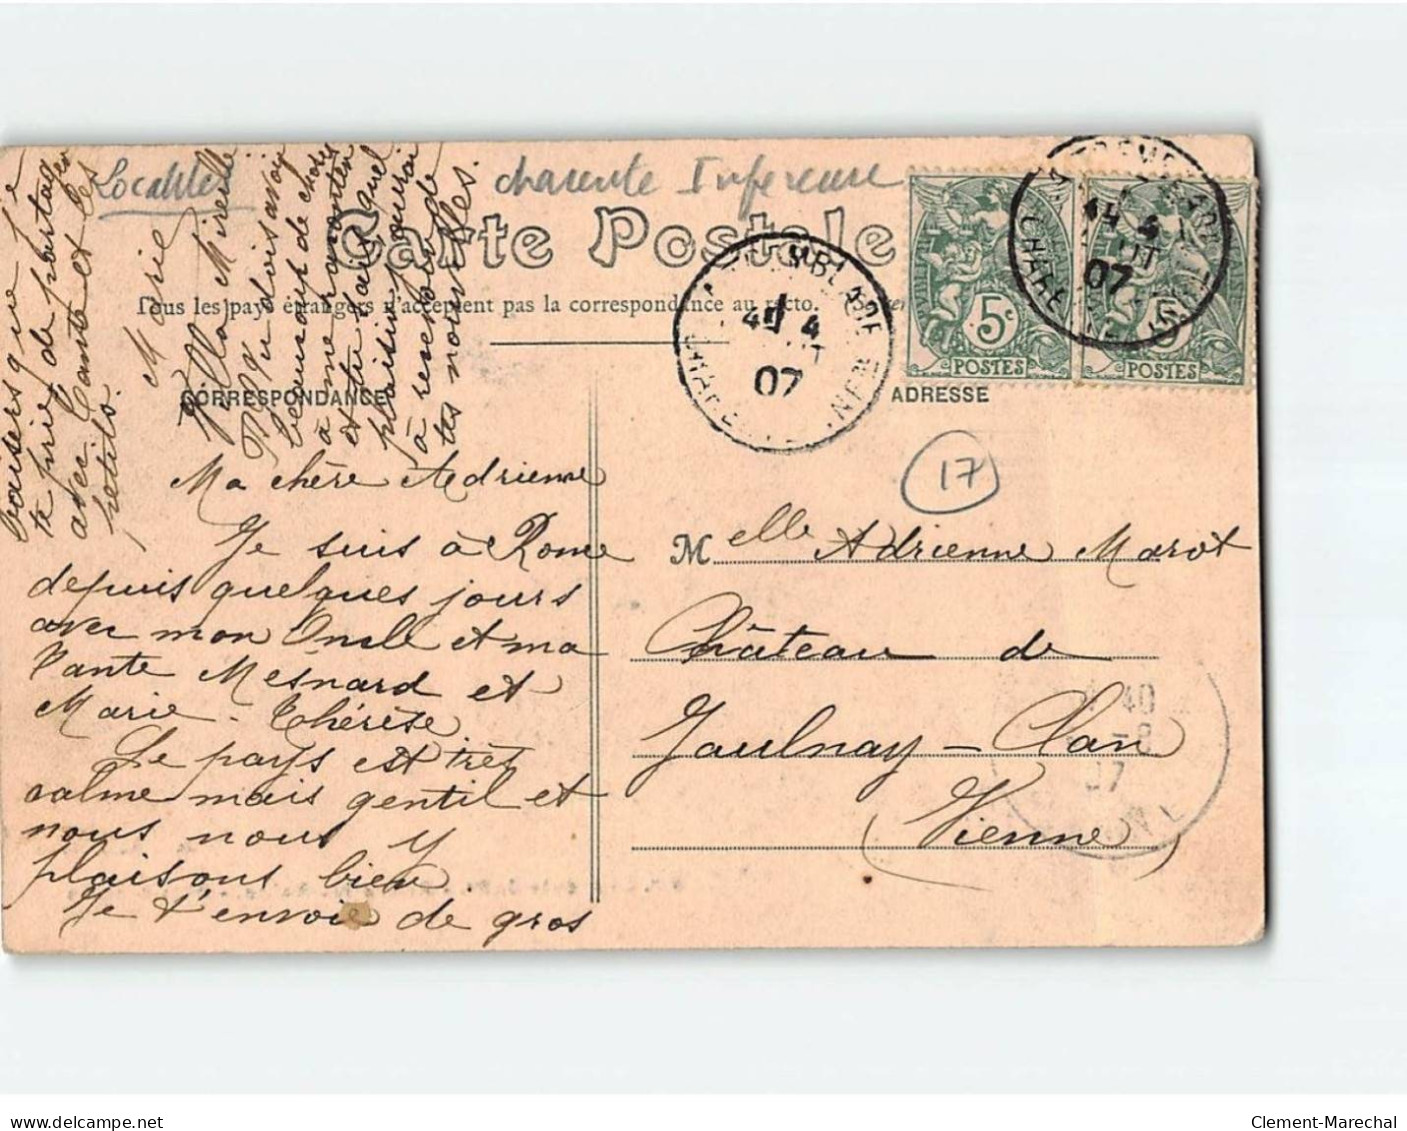 Localité
Charente Inférieure
Carte Postale
Tous les pays étrangers n'acceptent pas la correspondance au recto.
CORRESPONDANCE
ADRESSE
LA TREMBLADE
4
07
CHARENTE INFRE
LA TREMBLADE
07
5c
POSTES
5c
POSTES
17
Ma chère Adrienne
Je suis à Rome
depuis quelques jours
avec mon Oncle et ma
Tante Mesnard et
Marie-Thérèse
Le pays est très
calme mais gentil et
nous nous y
plaisons bien
Je t'envoie de gros
baisers que je
te prie de partager
avec Tante et les
petits.
Marie
Ma Mireille
Tu dois avoir
beaucoup de choses
à me raconter
et te hais quel
plaisir j'aurai
à recevoir de
tes nouvelles.
Melle Adrienne Marot
Château de
Jaulnay-Clan
(Vienne)
40
-8
07
Clement-Marechal
delcampe.net